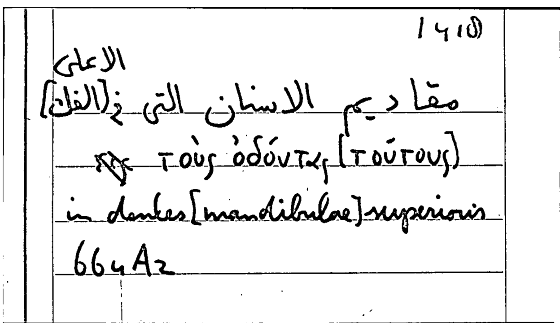 الاعلى
مقاديم الاسنان التى فى [الفك]
τοὺς ὀδόντας [τούτους]
in dentes [mandibulae] superioris
664 A2